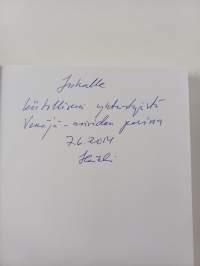 Juhalle
kiitollisena yhteistyöstä
Venäjä-asioiden parissa
7.6.2014
Heikki